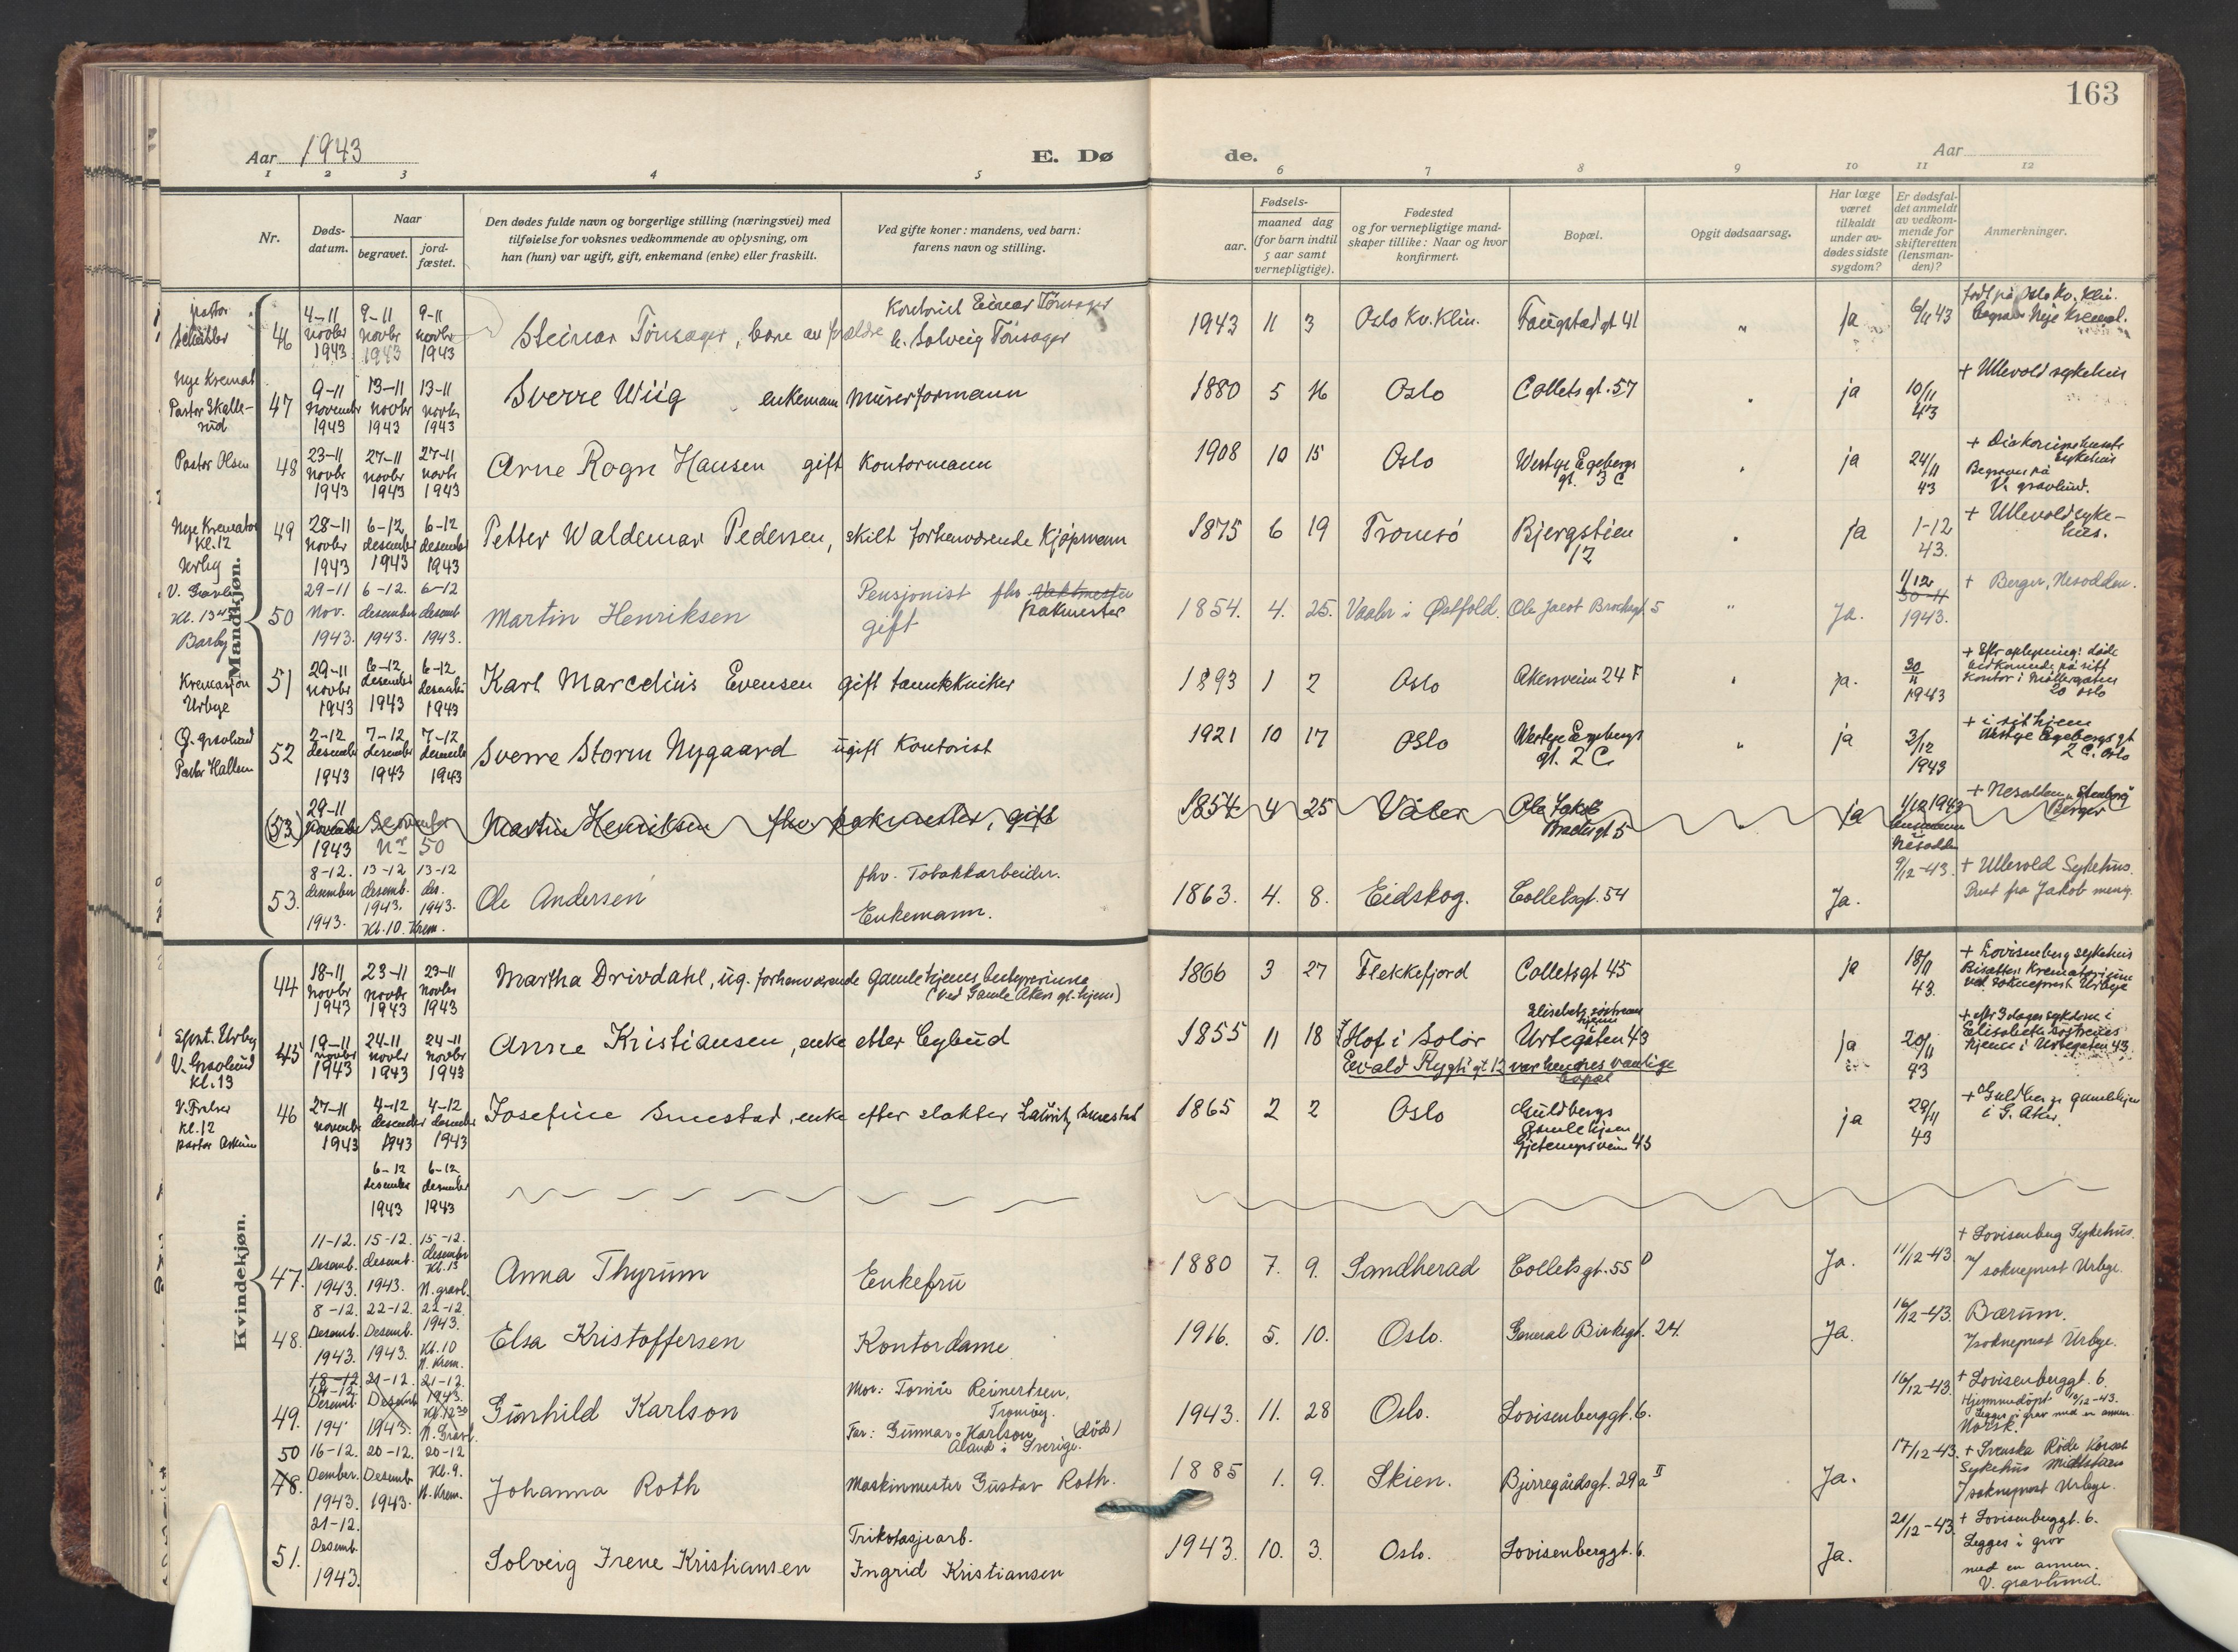 163
Aar 1943
E. Dø
de.
Aar
1 2 3 4 5 6 7 8 9 10 11 12
Nr.
Døds-
datum.
Naar
begravet.
jord-
fæstet.
Den dødes fulde navn og borgerlige stilling (næringsvei) med
tilføielse for voksnes vedkommende av oplysning, om
han (hun) var ugift, gift, enkemand (enke) eller fraskilt.
Ved gifte koner: mandens, ved barn:
farens navn og stilling.
Fødsels-
aar.
maaned dag
(for barn indtil
5 aar samt
vernepligtige).
Fødested
og for vernepligtige mand-
skaper tillike: Naar og hvor
konfirmert.
Bopæl.
Opgit dødsaarsag.
Har læge
været
tilkaldt
under av-
dødes sidste
sygdom?
Er dødsfal-
det anmeldt
av vedkom-
mende for
skifteretten
(lensman-
den)?
Anmerkninger.
Mandkjøn.
pastor
46
4-11 9-11 9-11
novbr novbr novbr
1943 1943 1943
Steinar Tönsager, barn av
Kontorist Einar Tönsager
h. Solveig Tönsager
1943 11 3 Oslo Kv. Klin. Faugstadgt 41 " ja 6/11 43
født på Oslo Kv. Klin.
Nye Kremat.
Nye Kremat
Pastor Skalle-
rud
47
9-11 13-11 13-11
novembr novbr novbr
1943 1943 1943
Sverre Wiig enkemann murerformann
1880 5 16 Oslo Colletsgt. 57 " ja 10/11 43
+ Ullevold sykehus
Pastor Olsen
48
23-11 27-11 27-11
novbr novbr novbr
1943 1943 1943
Arne Rogn Hansen gift kontormann
1908 10 15 Oslo Westye Egebergs
gt. 3 C
ja 24/11 43
+ Diakonissehusets
Sykehus
Begraves på
V. gravlund.
Nye Kremator
kl. 12
Urbye
49
28-11 6-12 6-12
novbr desember desember
1943 1943 1943
Petter Waldemar Pedersen, skilt forhenværende Kjøpmann
1875 6 19 Tromsö Bjergstien
12
ja 1-12
43.
+ Ullevold syke-
hus.
V. Gravl.
Barby
50
29-11 6-12. 6-12
Nov. desember desemb
1943. 1943. 1943.
Martin Henriksen
Pensjonist fhv. Vaktmester
pakmester
gift
1854. 4. 25. Vaaler i Østfold. Ole Jacob Brochsgt 5 " Ja.
1/12
30-11
1943.
+ Berger, Nesodden.
Kremasjon
Urbye
51
29-11 6-12 6-12
novbr desember desember
1943 1943 1943
Karl Marcelius Evensen gift tannkkniker
1893 1 2 Oslo Akersveien 24 F " ja. 30/11
1943
+ Eftr oplysning: døde
vedkommende på sitt
kontor i Møllergaten
20 Oslo
Ø. gravlund
Pastor Hallem
52
2-12 7-12 7-12
desember desember desember
1943 1943 1943
Sverre Storm Nygaard ugift Kontorist
1921 10 17 Oslo Westye Egebergs
gt. 2 C
" ja 3/12
1943
+ i sit hjem
Westye Egebergsgt
2 C. Oslo
(53)
29-11
november
1943 Nr 50
Martin Henriksen fhv pakmester, gift
1854 4 25 Våler Ole Jakob
Brochsgt 5
ja 1/12 1943
lensmann
Nesodden
+ Nesodden
Berger
53.
8-12. 13-12 13-12
desember desemb. des.
1943. 1943. 1943.
Kl. 10. Krem.
Ole Andersen
fhv. Tobakkarbeider.
Enkemann.
1863. 4. 8. Eidskog. Colletsgt. 54 Ja. 9/12-43.
+ Ullevold Sykehus.
Prest fra Jakob menig.
Kvindekjøn.
44
18-11 23-11 23-11
novbr novbr novbr
1943 1943 1943
Martha Drivdahl, ug. forhenværende gamlehjems bestyrerinne
(ved Gamle Akers gl. hjem)
1866 3 27 Flekkefjord Colletsgt 45 ja 18/11
43.
+ Lovisenberg sykehus
Bisettes Krematorium
ved sokneprest Urbye
Spr. Urbye
V. Gravlund
kl. 13
45
19-11 24-11 24-11
novbr novbr novbr
1943 1943 1943
Anne Kristiansen, enke etter Cybud
1855 11 18 Hof i Solør
Elisabeth søstrenes
hjem
Urtegaten 43
Evald Rygh's gt 12 var hendes vanlige
bopæl
ja 20/11
43
+ eftr 3 dages sykdom i
Elisabeth søstrenes
hjem i Urtegaten 43
V. Frelser
kl. 12
pastor Askim
46
27-11 4-12 4-12
november desember desember
1943 1943 1943
Josefine Smestad, enke efter slakter Lauritz Smestad
1865 2 2 Oslo Guldbergs
Gamlehjem
Gjetemyrsveien 43
ja 29/11
43
+ Guldbergs gamlehjem
i G. Aker.
6-12 6-12
desember desember
1943 1943
47.
11-12. 15-12. 15-12.
Desemb. desemb. desember
Kl. 13
1943. 1943. N. gravl.
Anna Thyrum Enkefru
1880 7. 9. Sandherad Colletsgt. 55 D Ja. 11/12-43.
+ Lovisenberg Sykehus.
v/ sokneprest Urbye.
48.
8-12. 22-12. 22-12.
Desemb. Desemb. 1943.
1943. 1943. Kl. 10
N. Krem.
Elsa Kristoffersen Kontordame
1916. 5. 10. Oslo. General Birchsgt. 24. Ja. 16/12-43.
Bærum.
v/ sokneprest Urbye.
49.
18-12 21-12. 21-12.
14-12
Desemb. Desemb. 1943.
Kl. 12 30
194 1943. N. Gravl.
Gunhild Karlson
Mor: Tomie Reinertsen,
Tromøy.
Far: Gunnar Karlson (död)
Åland i Sverige.
1943. 11. 28 Oslo. Lovisenberggt. 6. 16/12-43.
+ Lovisenberggt. 6.
Hjemmedöpt 13/12-43.
Legges i grav med en annen.
Norsk.
50
48.
16-12. 20-12. 20-12
Dember. Desemb. Kl. 9.
1943. 1943. N. Krem.
Johanna Roth Maskinmester Gustav Roth.
1885 1. 9. Skien. Bjerregårdsgt. 29a II Ja. 17/12-43.
+ Svenska Røde Korset
Sykehus Midtstuen
v/ sokneprest Urbye.
51.
21-12.
Desemb.
1943.
Solveig Irene Kristiansen
Trikotasjearb.
Ingrid Kristiansen
1943. 10. 3. Oslo. Lovisenberggt. 6. Ja. 21/12-43.
+ Lovisenberggt. 6.
Legges i grav
med en annen.
V. gravlund.